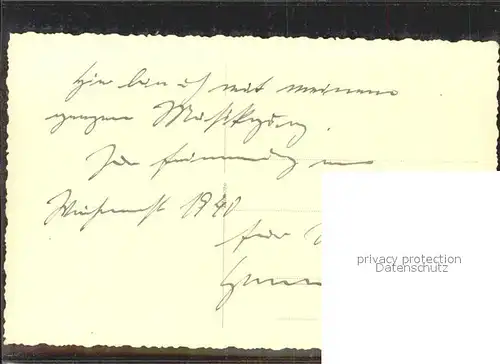 Hier bin ich mit meinem
ganzen Musikzug.
Zur Erinnerung an
1940
für
privacy protection
Datenschutz